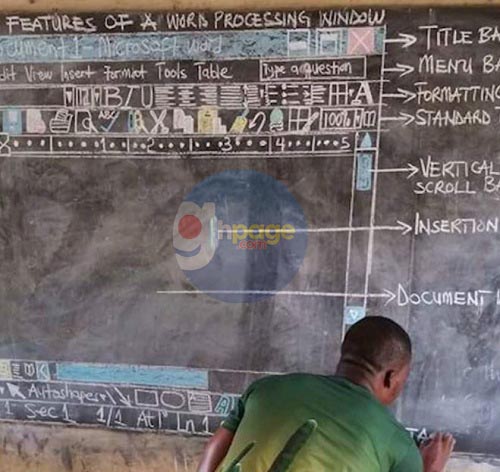 FEATURES OF A WORD PROCESSING WINDOW
ocument 1 - Microsoft word
TITLE BA
dit View Insert Format Tools Table Type a question
MENU BA
12 B I U A
FORMATTING
ABC 100%
STANDARD
1 2 3 4 5
VERTICAL
SCROLL BA
ghpage
.com
INSERTION
DOCUMENT
Autoshapes
1 Sec 1 1/1 At 1" Ln 1
STA